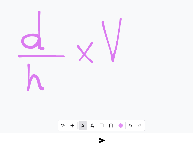 d
h
× V